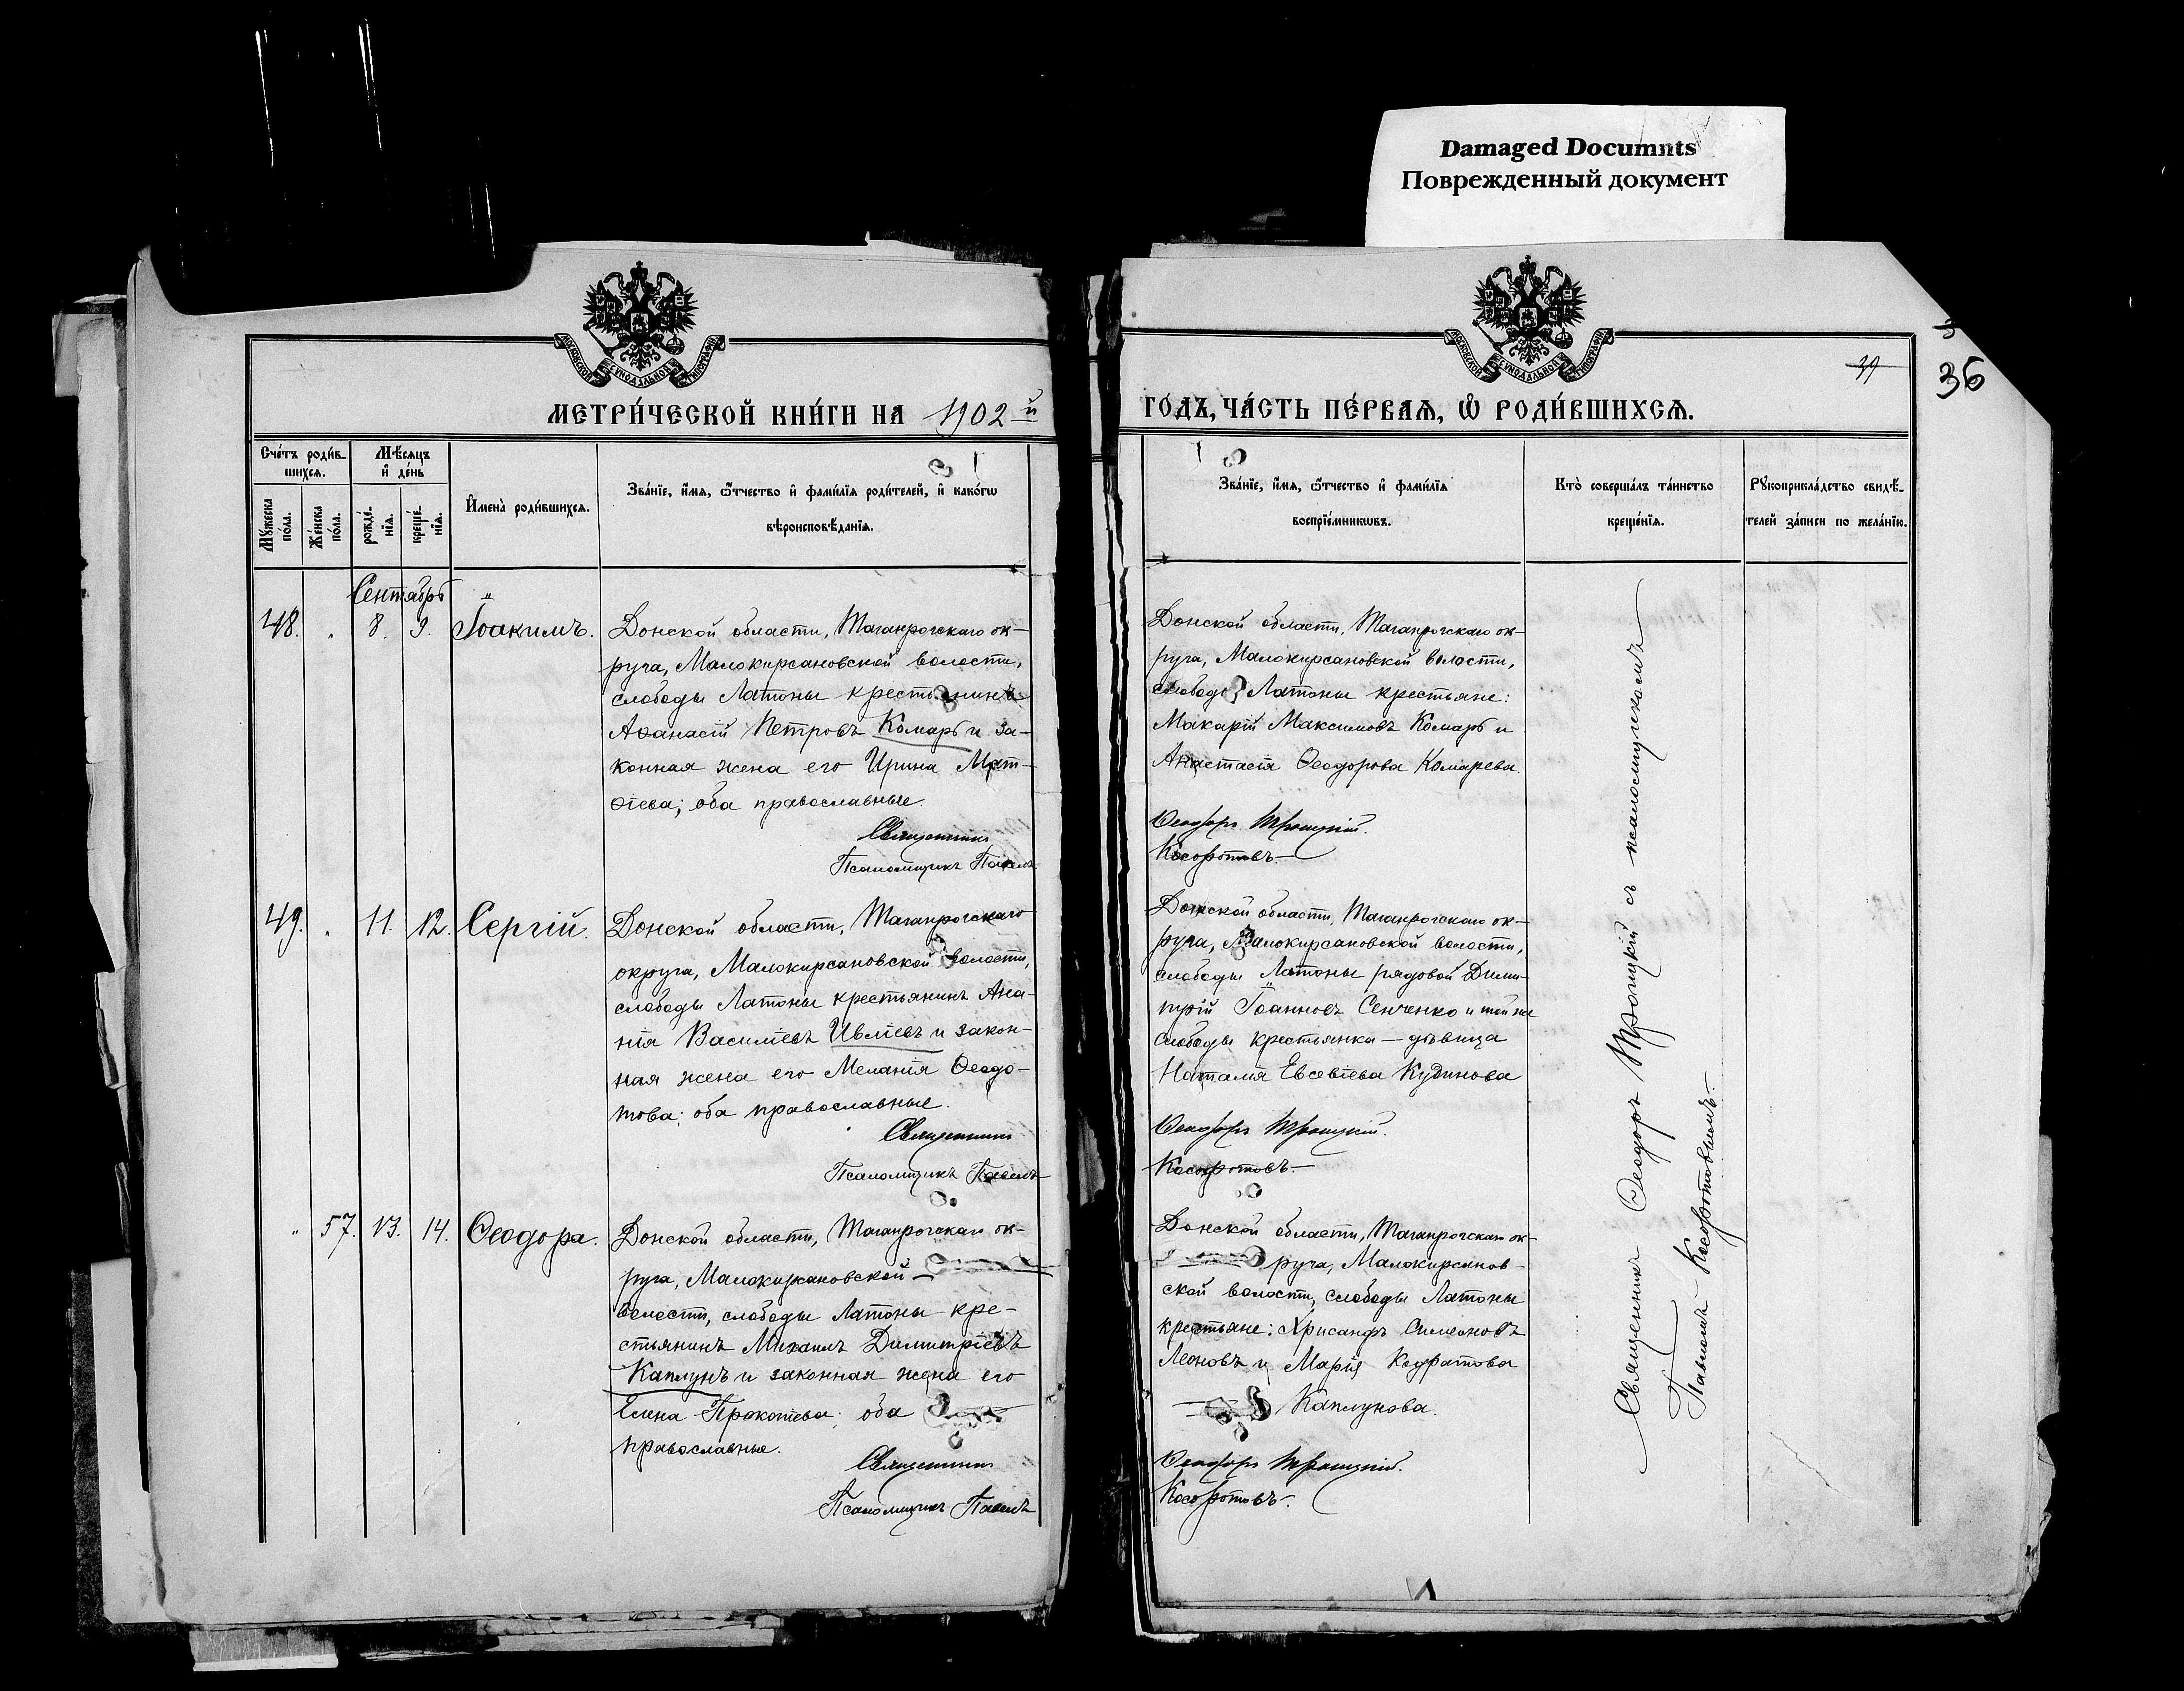 Damaged Documnts
Поврежденный документ
МОСКОВСКОЙ СѴНОДАЛЬНОЙ ТИПОГРАФІИ
МОСКОВСКОЙ СѴНОДАЛЬНОЙ ТИПОГРАФІИ
39
36
МЕТРИ́ЧЕСКОЙ КНИ́ГИ НА 1902 й
ГО́ДЪ, ЧА́СТЬ ПЕ́РВАѦ, Ѡ҆ РОДИ́ВШИХСѦ.
Сче́тъ роди́в-
шихсѧ.
Мѣ́сѧцъ
и҆ де́нь
Мꙋ́жеска
по́ла.
Же́нска
по́ла.
рожде́-
нїѧ.
креще́-
нїѧ.
И҆мена̀ роди́вшихсѧ.
Зва́нїе, и҆́мѧ, ѻ҆́тчество и҆ фами́лїѧ роди́телей, и҆ како́гѡ
вѣроисповѣ́данїѧ.
Зва́нїе, и҆́мѧ, ѻ҆́тчество и҆ фами́лїѧ
воспрїе́мникѡвъ.
Кто̀ соверша́лъ та́инство
креще́нїѧ.
Рꙋкоприкла́дство свидѣ́-
телей за́писи по жела́нїю.
Сентябрь
48. „ 8. 9. Іоакимъ.
Донской области, Таганрогскаго ок-
руга, Малокирсановской волости,
слободы Латоны крестьянинъ
Аѳанасій Петровъ Комарь и за-
конная жена его Ирина Мат-
ѳіева; оба православные.
Священникъ
Псаломщикъ Павелъ
Донской области, Таганрогскаго ок-
руга, Малокирсановской волости,
слободы Латоны крестьяне:
Макарій Максимовъ Комарь и
Анастасія Ѳеодорова Комарева.
Ѳеодоръ Троицкій.
Косоротовъ.
49. „ 11. 12. Сергій.
Донской области, Таганрогскаго
округа, Малокирсановской волости,
слободы Латоны крестьянинъ Ана-
нія Василіевъ Ивліевъ и закон-
ная жена его Меланія Ѳеодо-
това; оба православные.
Священникъ
Псаломщикъ Павелъ
Донской области, Таганрогскаго ок-
руга, Малокирсановской волости,
слободы Латоны рядовой Дими-
трій Іоанновъ Сенченко и той же
слободы крестьянка — дѣвица
Наталія Евсевіева Кудинова
Ѳеодоръ Троицкій.
Косоротовъ.
„ 57. 13. 14. Ѳеодора.
Донской области, Таганрогскаго ок-
руга, Малокирсановской
волости, слободы Латоны кре-
стьянинъ Михаилъ Димитріевъ
Каплунъ и законная жена его
Елена Прокопіева; оба
православные.
Священникъ
Псаломщикъ Павелъ
Донской области, Таганрогскаго ок-
руга, Малокирсанов-
ской волости, слободы Латоны
крестьяне: Хрисанфъ Симеоновъ
Леоновъ и Марія Кодратова
Каплунова.
Ѳеодоръ Троицкій.
Косоротовъ.
Священникъ Ѳеодоръ Троицкій съ псаломщикомъ
Павломъ Косоротовымъ.